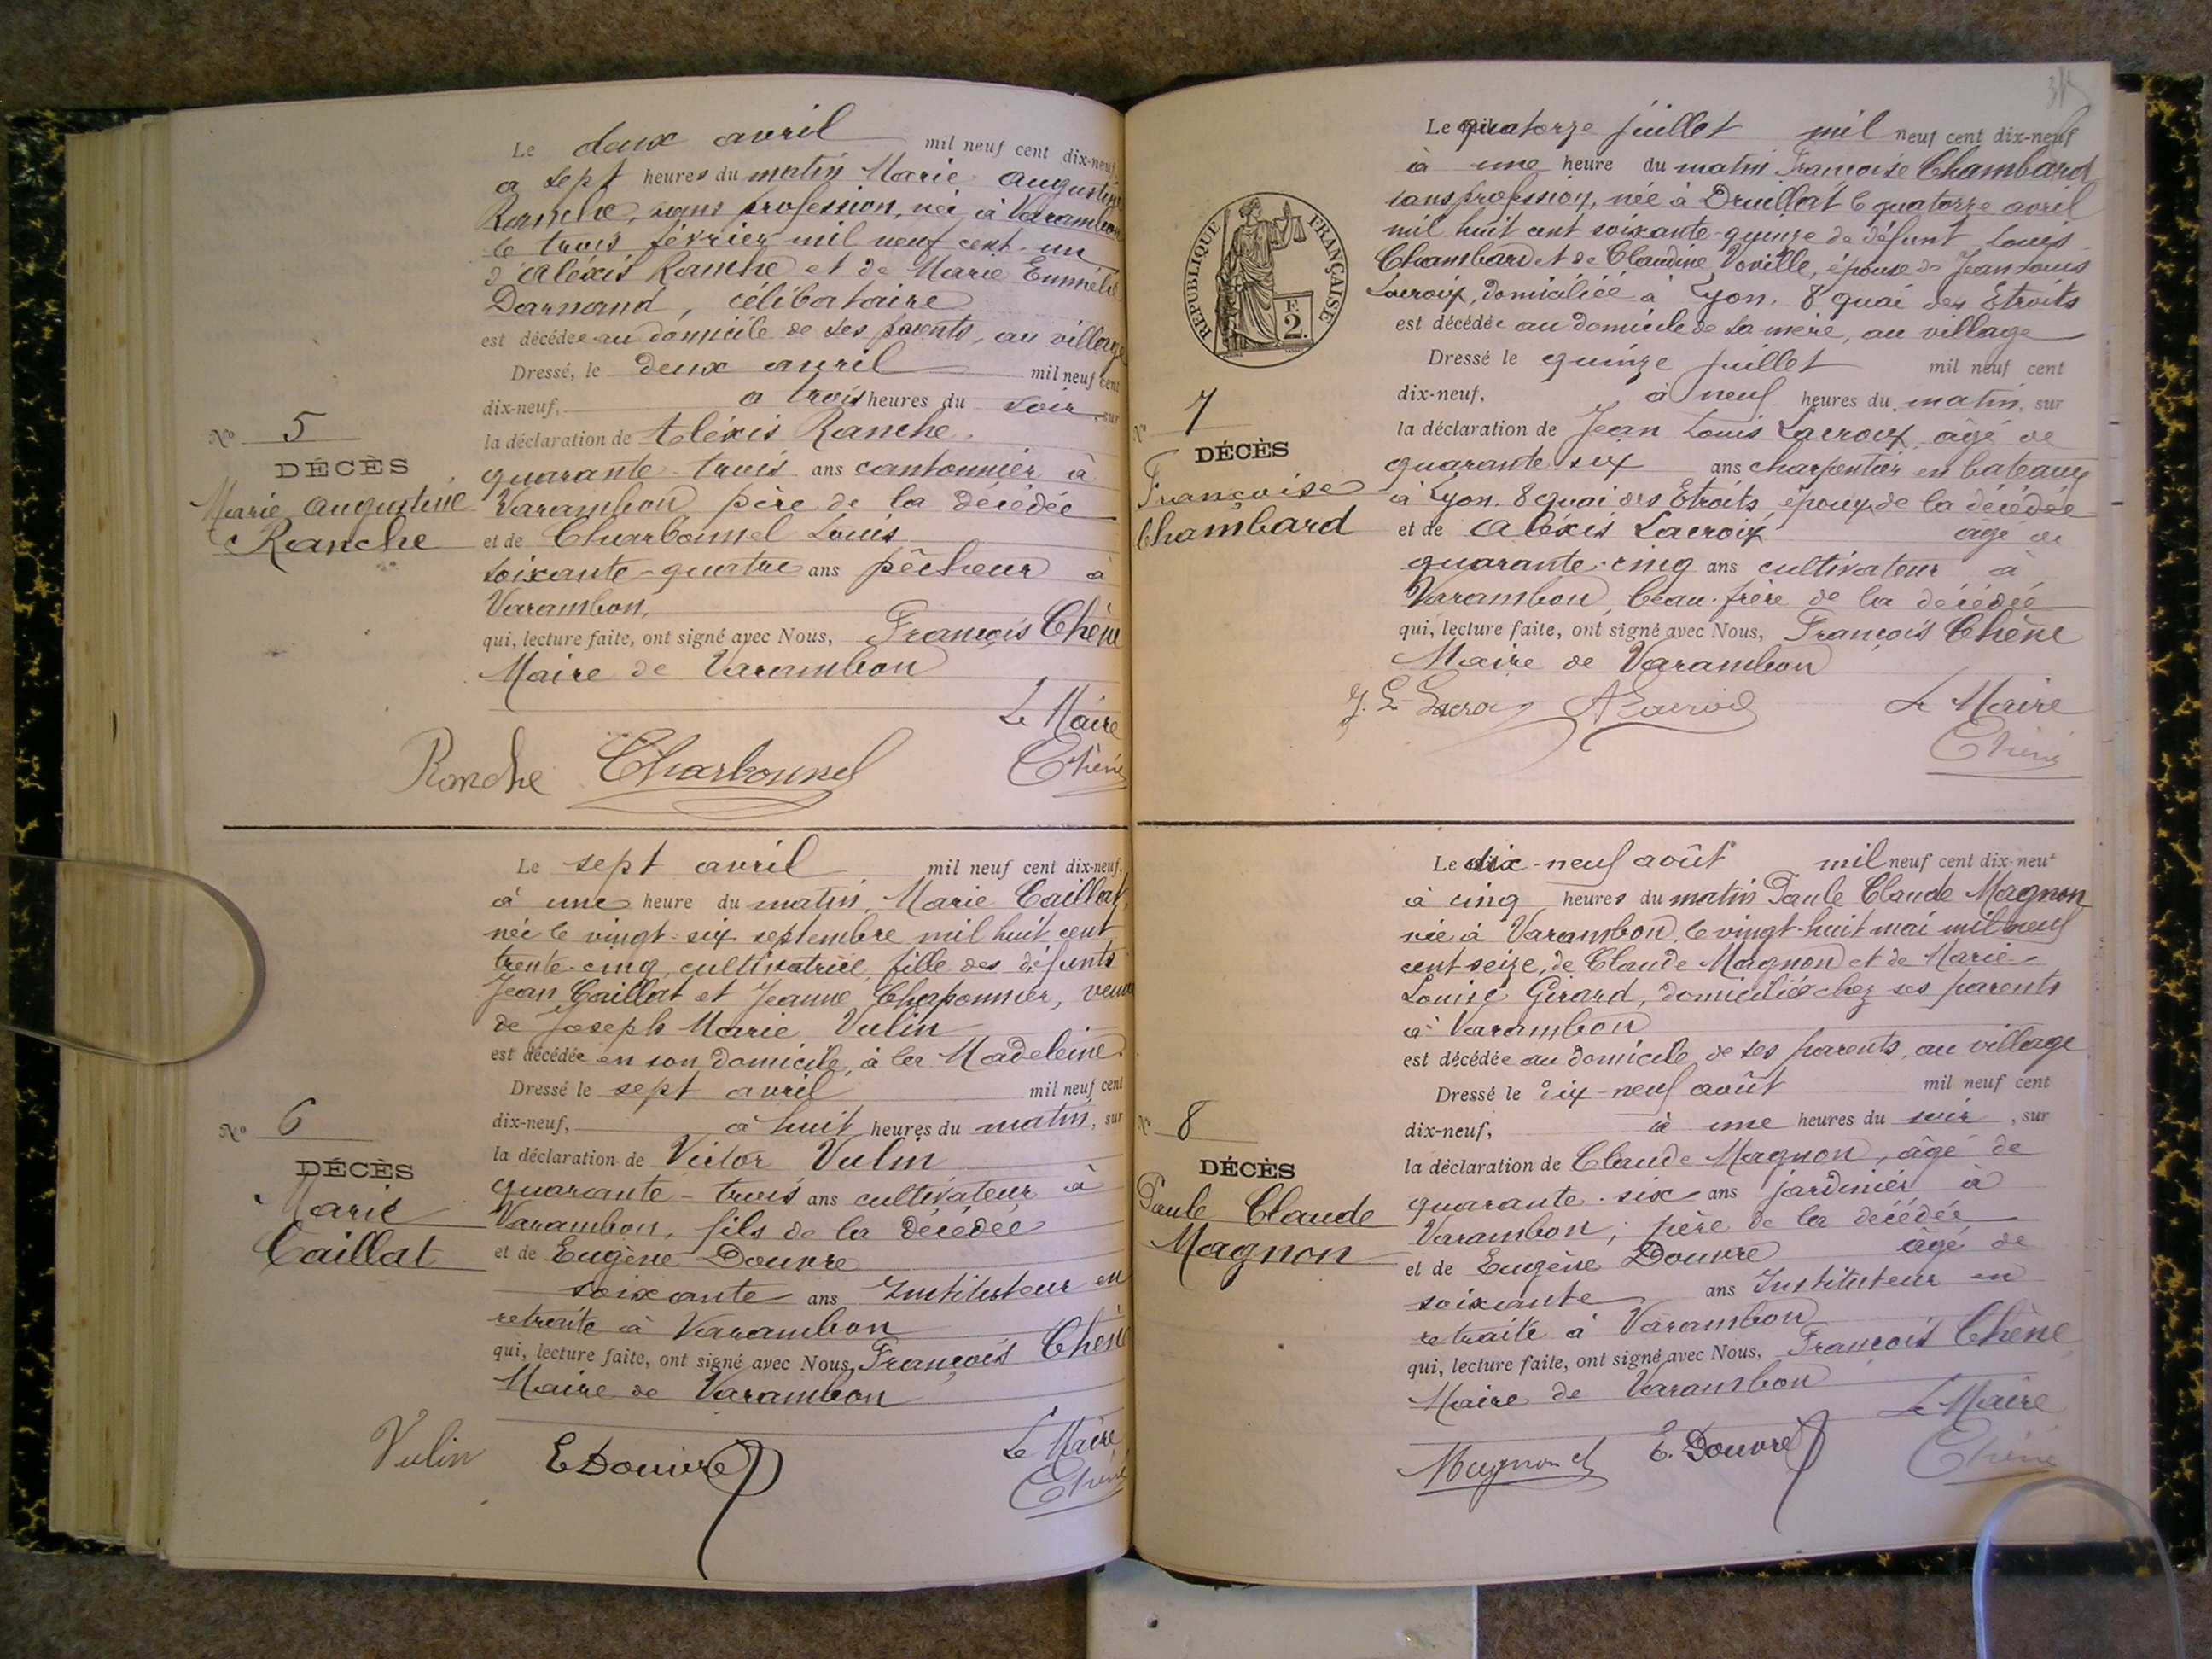 Le deux avril mil neuf cent dix-neuf
a sept heures du matin Marie Augustine
Ranche, sans profession, née à Varambon
le trois février mil neuf cent un
d'Aléxis Ranche et de Marie
Darnand, célibataire
est décédée au domicile de ses parents, au village
Dressé, le deux avril mil neuf cent
dix-neuf, a trois heures du soir, sur
la déclaration de Aléxis Ranche.
quarante-trois ans cantonnier à
Varambon père de la décédée
et de Charbonnel Louis
soixante-quatre ans pêcheur à
Varambon,
qui, lecture faite, ont signé avec Nous, François Chêne
Maire de Varambon
Le Maire
Ranche Charbonnel Chêne
No 5
DÉCÈS
Marie Augustine
Ranche
Le sept avril mil neuf cent dix-neuf,
à une heure du matin, Marie Caillat,
née le vingt-six septembre mil huit cent
trente-cinq, cultivatrice, fille des défunts
Jean Caillat et Jeanne Chaponnier, veuve
de Joseph Marie Vulin
est décédée en son domicile, à la Madeleine
Dressé le sept avril mil neuf cent
dix-neuf, à huit heures du matin, sur
la déclaration de Victor Vulin
quarante-trois ans cultivateur à
Varambon, fils de la décédée
et de Eugène Douvre
soixante ans Instituteur en
retraite à Varambon
qui, lecture faite, ont signé avec Nous, François Chêne
Maire de Varambon
Le Maire
Vulin EDouvre Chêne
No 6
DÉCÈS
Marie
Caillat
Le quatorze juillet mil neuf cent dix-neuf
à une heure du matin Françoise Chambard
sans profession, née à Druillat le quatorze avril
mil huit cent soixante-quinze de défunt Louis
Chambard et de Claudine Voville, épouse de Jean Louis
Lacroix, domiciliée à Lyon. 8 quai des Etroits
est décédée au domicile de sa mère, au village
RÉPUBLIQUE FRANÇAISE
F.
2.
Dressé le quinze juillet mil neuf cent
dix-neuf, à neuf heures du matin, sur
la déclaration de Jean Louis Lacroix âgé de
quarante-six ans charpentier en bateaux
à Lyon. 8 quai des Etroits, époux de la décédée
et de Aléxis Lacroix âgé de
quarante-cinq ans cultivateur à
Varambon, beau-frère de la décédée
qui, lecture faite, ont signé avec Nous, François Chêne
Maire de Varambon
J. L. Lacroix A Lacroix Le Maire
Chêne
No 7
DÉCÈS
Françoise
Chambard
Le dix-neuf août mil neuf cent dix-neuf
à cinq heures du matin Paule Claude Magnon
née à Varambon, le vingt-huit mai mil neuf
cent seize, de Claude Magnon et de Marie
Louise Girard, domiciliée chez ses parents
à Varambon
est décédée au domicile de ses parents, au village
Dressé le dix-neuf août mil neuf cent
dix-neuf, à une heures du soir, sur
la déclaration de Claude Magnon, âgé de
quarante-six ans jardinier à
Varambon, père de la décédée
et de Eugène Douvre âgé de
soixante ans Instituteur en
retraite à Varambon
qui, lecture faite, ont signé avec Nous, François Chêne
Maire de Varambon
Le Maire
Magnon cl E. Douvre Chêne
No 8
DÉCÈS
Paule Claude
Magnon